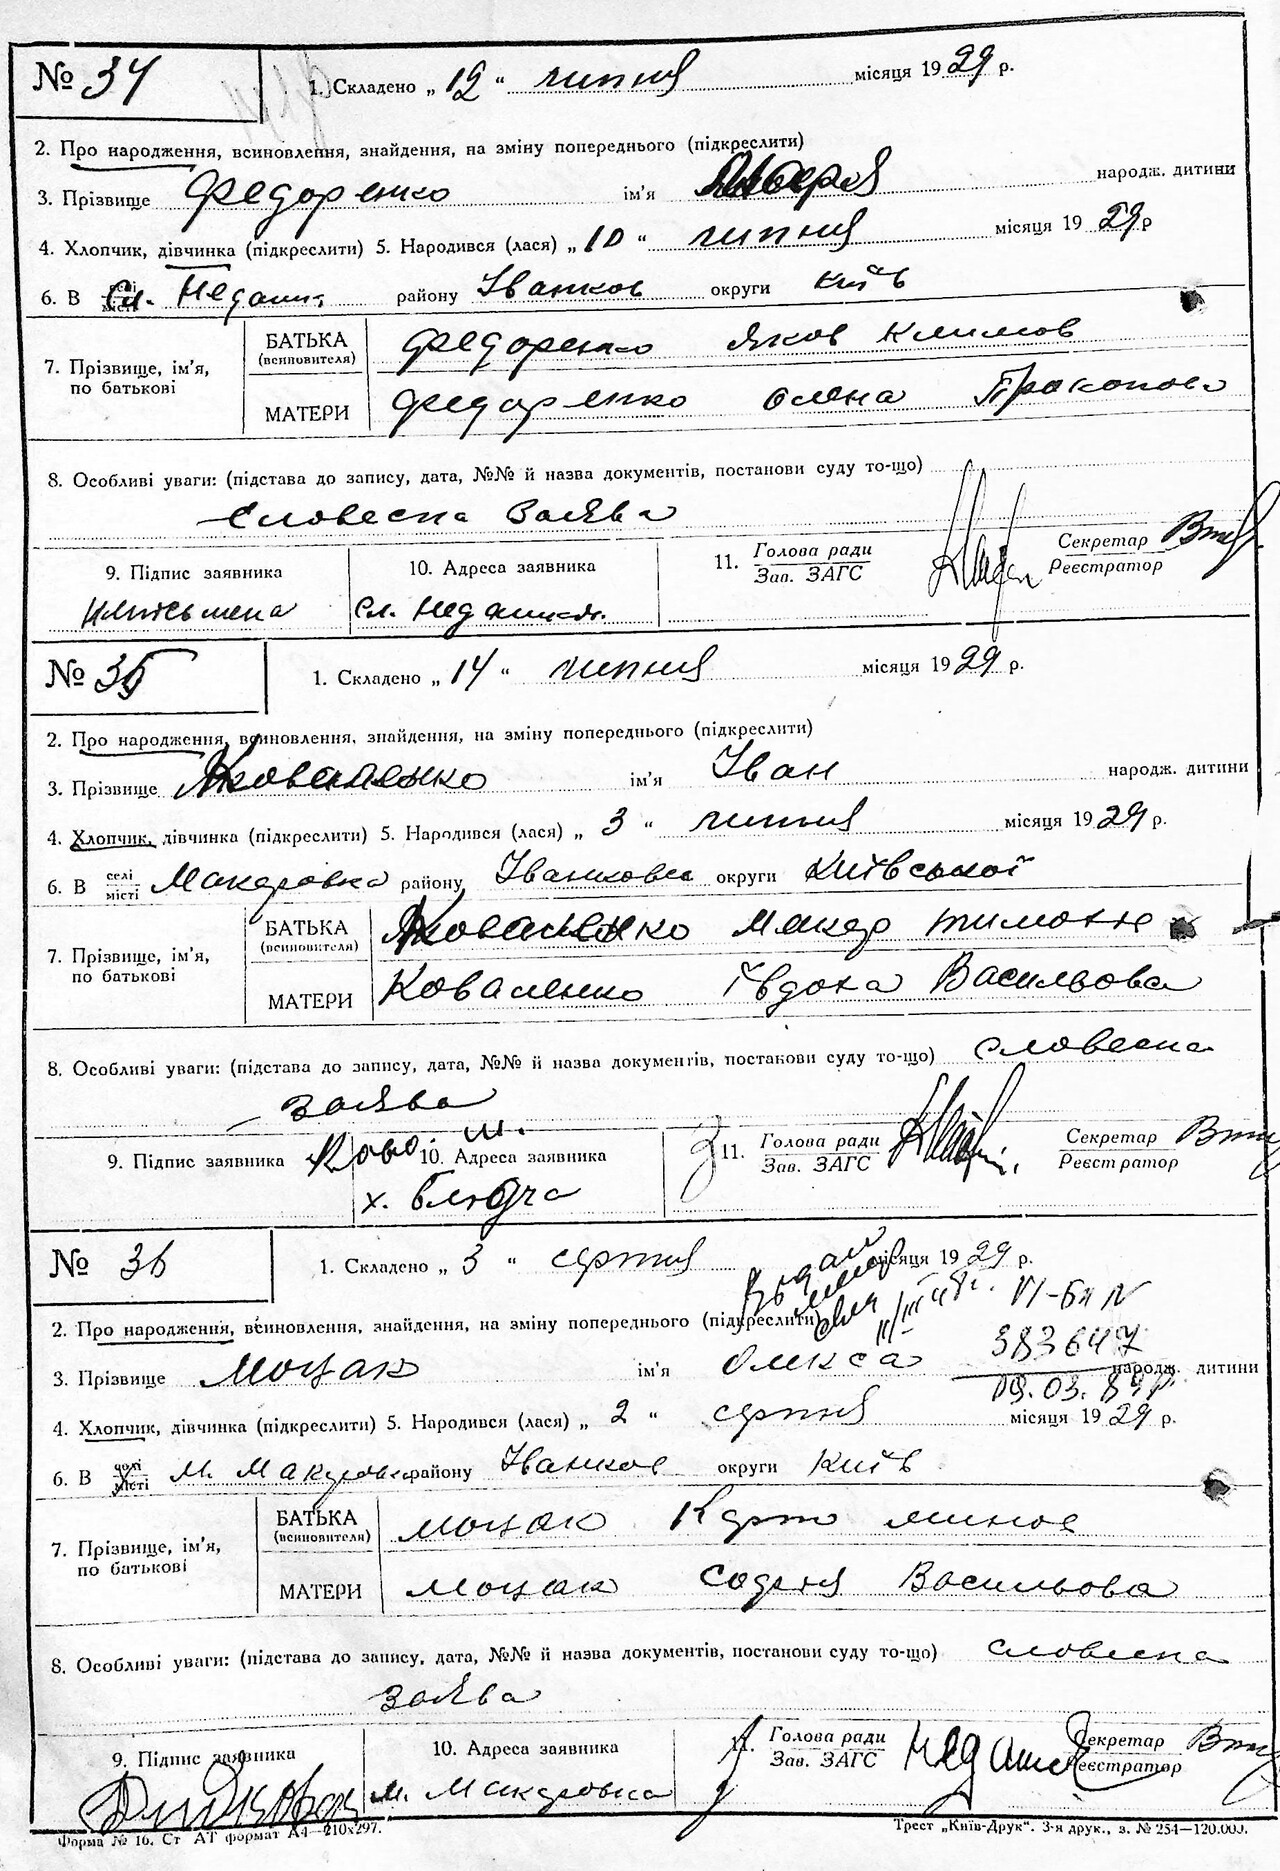 № 34
1. Складено „ 12 “ липня місяця 1929 р.
2. Про народження, всиновлення, знайдення, на зміну попереднього (підкреслити)
3. Прізвище Федоренко ім'я народж. дитини
4. Хлопчик, дівчинка (підкреслити) 5. Народився (лася) „ 10 “ липня місяця 1929 р
6. В селі місті Сл. району Іванков округи Київ
7. Прізвище, ім'я, по батькові
БАТЬКА (всиновителя) Федоренко Яков Климов
МАТЕРИ Федоренко Олена Прокопова
8. Особливі уваги: (підстава до запису, дата, №№ й назва документів, постанови суду то-що)
Словесна Заява
9. Підпис заявника
10. Адреса заявника
11. Голова ради Зав. ЗАГС
Секретар Реєстратор
Сл.
№ 35
1. Складено „ 14 “ липня місяця 1929 р.
2. Про народження, всиновлення, знайдення, на зміну попереднього (підкреслити)
3. Прізвище Коваленко ім'я Іван народж. дитини
4. Хлопчик, дівчинка (підкреслити) 5. Народився (лася) „ 3 “ липня місяця 1929 р.
6. В селі місті Макаровка району Іванковс округи Київської
7. Прізвище, ім'я, по батькові
БАТЬКА (всиновителя) Макар
МАТЕРИ Коваленко Васильова
8. Особливі уваги: (підстава до запису, дата, №№ й назва документів, постанови суду то-що) словесна
заява
9. Підпис заявника
10. Адреса заявника
11. Голова ради Зав. ЗАГС
Секретар Реєстратор
х.
№ 36
1. Складено „ 3 “ серпня місяця 1929 р.
VI-БК N
2. Про народження, всиновлення, знайдення, на зміну попереднього (підкреслити)
383647
3. Прізвище Моцак ім'я Олекса народж. дитини
09.03.89р.
4. Хлопчик, дівчинка (підкреслити) 5. Народився (лася) „ 2 “ серпня місяця 1929 р.
6. В селі місті М. Макаровка району Іванков округи Київ
7. Прізвище, ім'я, по батькові
БАТЬКА (всиновителя) Моцак Минов
МАТЕРИ Моцак Васильова
8. Особливі уваги: (підстава до запису, дата, №№ й назва документів, постанови суду то-що) словесна
заява
9. Підпис заявника
10. Адреса заявника
11. Голова ради Зав. ЗАГС
Секретар Реєстратор
м. Макаровка
Форма № 16. Ст АТ формат А4—210х297.
Трест „Київ-Друк“. 3-я друк., з. № 254—120.000.